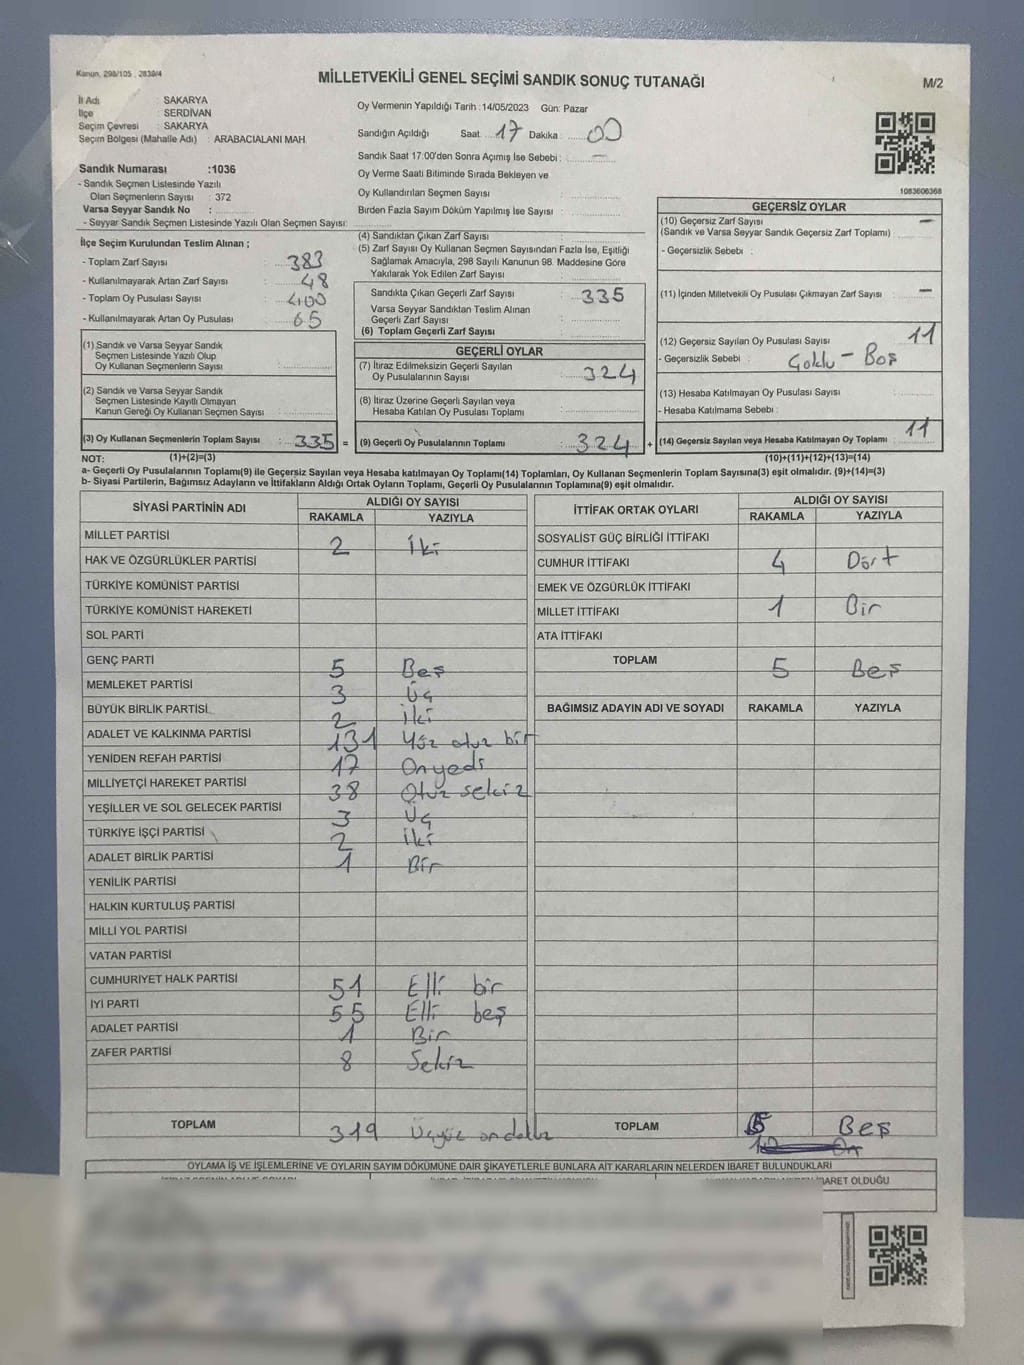 Kanun, 298/105 , 2839/4
MİLLETVEKİLİ GENEL SEÇİMİ SANDIK SONUÇ TUTANAĞI
M/2
İl Adı : SAKARYA
İlçe : SERDİVAN
Seçim Çevresi : SAKARYA
Seçim Bölgesi (Mahalle Adı) : ARABACIALANI MAH
Sandık Numarası :1036
- Sandık Seçmen Listesinde Yazılı
Olan Seçmenlerin Sayısı : 372
Varsa Seyyar Sandık No :
- Seyyar Sandık Seçmen Listesinde Yazılı Olan Seçmen Sayısı:
Oy Vermenin Yapıldığı Tarih :14/05/2023 Gün: Pazar
Sandığın Açıldığı Saat 17 Dakika 00
Sandık Saat 17:00'den Sonra Açımış İse Sebebi : —
Oy Verme Saati Bitiminde Sırada Bekleyen ve
Oy Kullandırılan Seçmen Sayısı :
Birden Fazla Sayım Döküm Yapılmış İse Sayısı :
1083606368
İlçe Seçim Kurulundan Teslim Alınan ;
- Toplam Zarf Sayısı : 383
- Kullanılmayarak Artan Zarf Sayısı : 48
- Toplam Oy Pusulası Sayısı : 400
- Kullanılmayarak Artan Oy Pusulası : 65
(1) Sandık ve Varsa Seyyar Sandık
Seçmen Listesinde Yazılı Olup
Oy Kullanan Seçmenlerin Sayısı :
(2) Sandık ve Varsa Seyyar Sandık
Seçmen Listesinde Kayıtlı Olmayan
Kanun Gereği Oy Kullanan Seçmen Sayısı :
(3) Oy Kullanan Seçmenlerin Toplam Sayısı : 335 =
(4) Sandıktan Çıkan Zarf Sayısı :
(5) Zarf Sayısı Oy Kullanan Seçmen Sayısından Fazla İse, Eşitliği
Sağlamak Amacıyla, 298 Sayılı Kanunun 98. Maddesine Göre
Yakılarak Yok Edilen Zarf Sayısı :
Sandıkta Çıkan Geçerli Zarf Sayısı : 335
Varsa Seyyar Sandıktan Teslim Alınan
Geçerli Zarf Sayısı :
(6) Toplam Geçerli Zarf Sayısı :
GEÇERLİ OYLAR
(7) İtiraz Edilmeksizin Geçerli Sayılan
Oy Pusulalarının Sayısı : 324
(8) İtiraz Üzerine Geçerli Sayılan veya
Hesaba Katılan Oy Pusulası Toplamı :
(9) Geçerli Oy Pusulalarının Toplamı : 324 +
GEÇERSİZ OYLAR
(10) Geçersiz Zarf Sayısı : —
(Sandık ve Varsa Seyyar Sandık Geçersiz Zarf Toplamı)
- Geçersizlik Sebebi :
(11) İçinden Milletvekili Oy Pusulası Çıkmayan Zarf Sayısı : —
(12) Geçersiz Sayılan Oy Pusulası Sayısı : 11
- Geçersizlik Sebebi : Çoklu - Boş
(13) Hesaba Katılmayan Oy Pusulası Sayısı :
- Hesaba Katılmama Sebebi :
(14) Geçersiz Sayılan veya Hesaba Katılmayan Oy Toplamı : 11
NOT: (1)+(2)=(3) (10)+(11)+(12)+(13)=(14)
a- Geçerli Oy Pusulalarının Toplamı(9) ile Geçersiz Sayılan veya Hesaba katılmayan Oy Toplamı(14) Toplamları, Oy Kullanan Seçmenlerin Toplam Sayısına(3) eşit olmalıdır. (9)+(14)=(3)
b- Siyasi Partilerin, Bağımsız Adayların ve İttifakların Aldığı Ortak Oyların Toplamı, Geçerli Oy Pusulalarının Toplamına(9) eşit olmalıdır.
SİYASİ PARTİNİN ADI ALDIĞI OY SAYISI
RAKAMLA YAZIYLA
MİLLET PARTİSİ 2 İki
HAK VE ÖZGÜRLÜKLER PARTİSİ
TÜRKİYE KOMÜNİST PARTİSİ
TÜRKİYE KOMÜNİST HAREKETİ
SOL PARTİ
GENÇ PARTİ 5 Beş
MEMLEKET PARTİSİ 3 Üç
BÜYÜK BİRLİK PARTİSİ 2 İki
ADALET VE KALKINMA PARTİSİ 131 Yüz otuz bir
YENİDEN REFAH PARTİSİ 17 Onyedi
MİLLİYETÇİ HAREKET PARTİSİ 38 Otuz sekiz
YEŞİLLER VE SOL GELECEK PARTİSİ 3 Üç
TÜRKİYE İŞÇİ PARTİSİ 2 İki
ADALET BİRLİK PARTİSİ 1 Bir
YENİLİK PARTİSİ
HALKIN KURTULUŞ PARTİSİ
MİLLİ YOL PARTİSİ
VATAN PARTİSİ
CUMHURİYET HALK PARTİSİ 51 Elli bir
İYİ PARTİ 55 Elli beş
ADALET PARTİSİ 1 Bir
ZAFER PARTİSİ 8 Sekiz
TOPLAM 319 Üçyüz ondokuz
İTTİFAK ORTAK OYLARI ALDIĞI OY SAYISI
RAKAMLA YAZIYLA
SOSYALİST GÜÇ BİRLİĞİ İTTİFAKI
CUMHUR İTTİFAKI 4 Dört
EMEK VE ÖZGÜRLÜK İTTİFAKI
MİLLET İTTİFAKI 1 Bir
ATA İTTİFAKI
TOPLAM 5 Beş
BAĞIMSIZ ADAYIN ADI VE SOYADI RAKAMLA YAZIYLA
TOPLAM 5 Beş
10 On
OYLAMA İŞ VE İŞLEMLERİNE VE OYLARIN SAYIM DÖKÜMÜNE DAİR ŞİKAYETLERLE BUNLARA AİT KARARLARIN NELERDEN İBARET BULUNDUKLARI
İBARET OLDUĞU